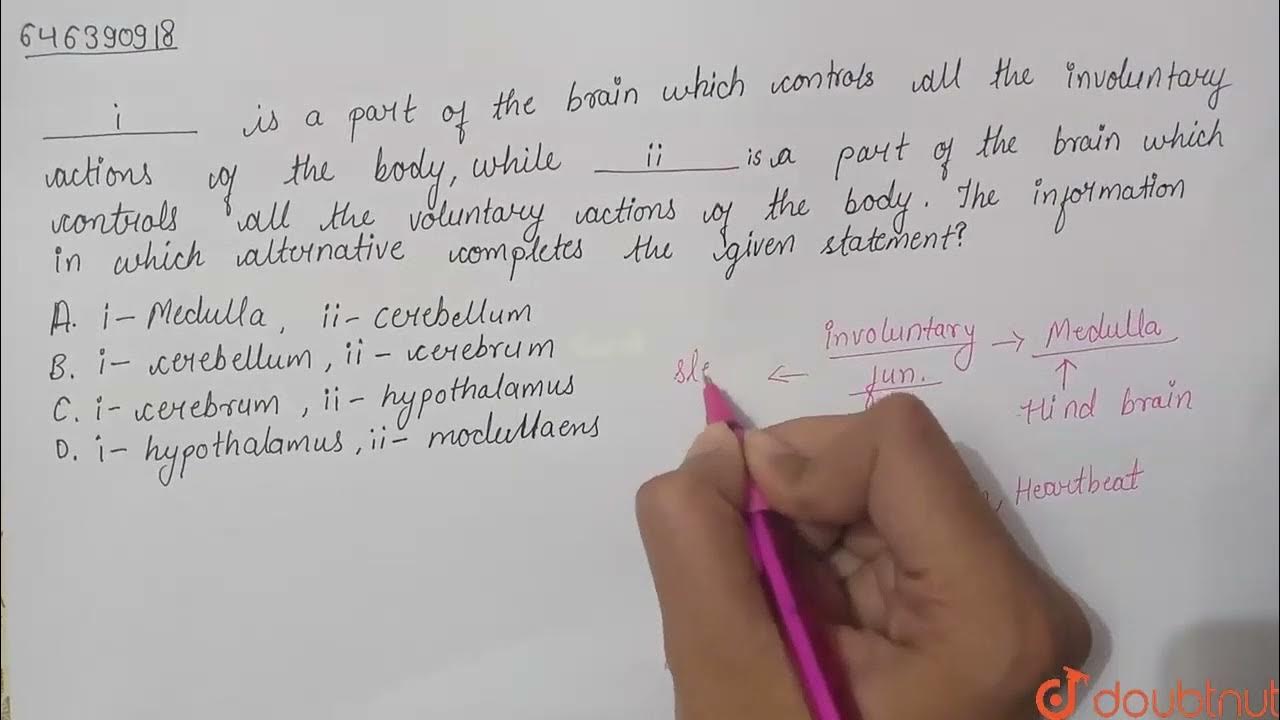 646390918
i is a part of the brain which controls all the involuntary
actions of the body, while ii is a part of the brain which
controls all the voluntary actions of the body. The information
in which alternative completes the given statement?
A. i- Medulla, ii- cerebellum
B. i- cerebellum, ii- cerebrum
C. i- cerebrum, ii- hypothalamus
D. i- hypothalamus, ii- modullaens
involuntary → Medulla
sle ← fun. ↑
Hind brain
, Heartbeat
doubtnut